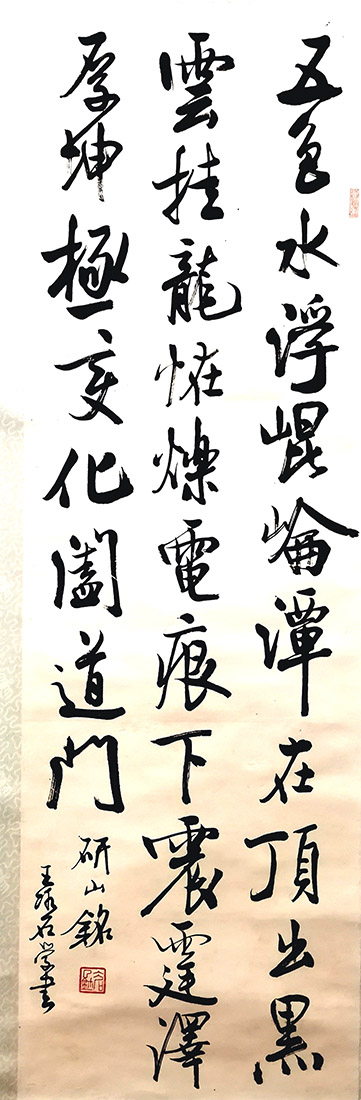 五色水浮崐崘潭在頂出黑
雲挂龍恠爍電痕下震霆澤
厚坤極變化闔道門
研山銘
王 石學書